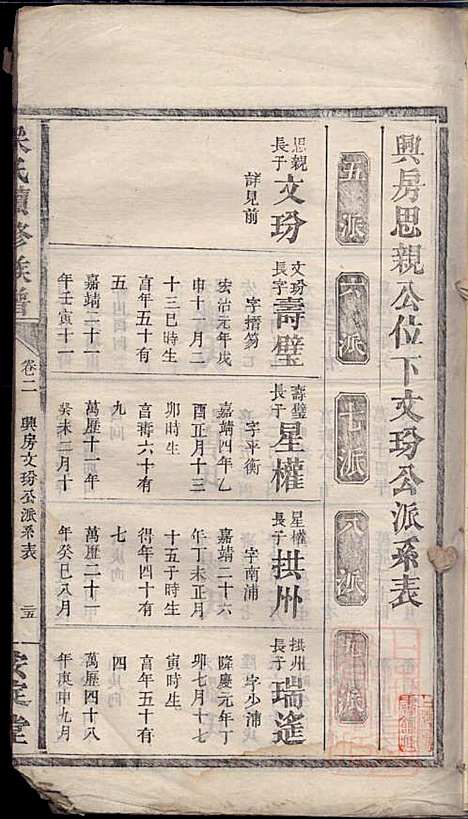 興房思親公位下文玢公派系表
五派
六派
七派
八派
九派
思親
長子
文玢
詳見前
文玢
長子
壽璧
字搢笏
宏治元年戊
申十一月二
十三巳時生
亯年五十有
五
嘉靖二十一
年壬寅十一
壽璧
長子
星權
字平衡
嘉靖四年乙
酉正月十三
卯時生
亯壽六十有
九
萬歷十一年
癸未二月十
星權
長子
拱州
字南浦
嘉靖二十六
年丁未正月
十五子時生
得年四十有
七
萬歷二十一
年癸巳八月
拱州
長子
瑞遙
字少浦
隆慶元年丁
卯七月十七
寅時生
亯年五十有
四
萬歷四十八
年庚申九月
氏續修族譜
卷二
興房文玢公派系表
三五
堂